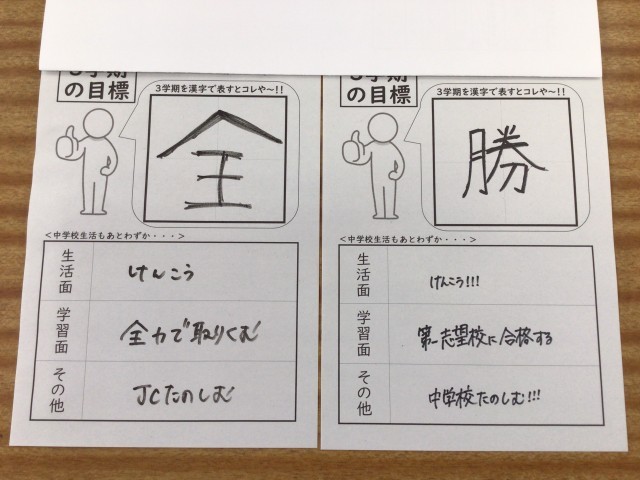 3学期
の目標
3学期を漢字で表すとコレや〜!!
全
<中学校生活もあとわずか・・・>
生活面
けんこう
学習面
全力で取りくむ
その他
JCたのしむ
3学期
の目標
3学期を漢字で表すとコレや〜!!
勝
<中学校生活もあとわずか・・・>
生活面
けんこう!!!
学習面
第一志望校に合格する
その他
中学校たのしむ!!!